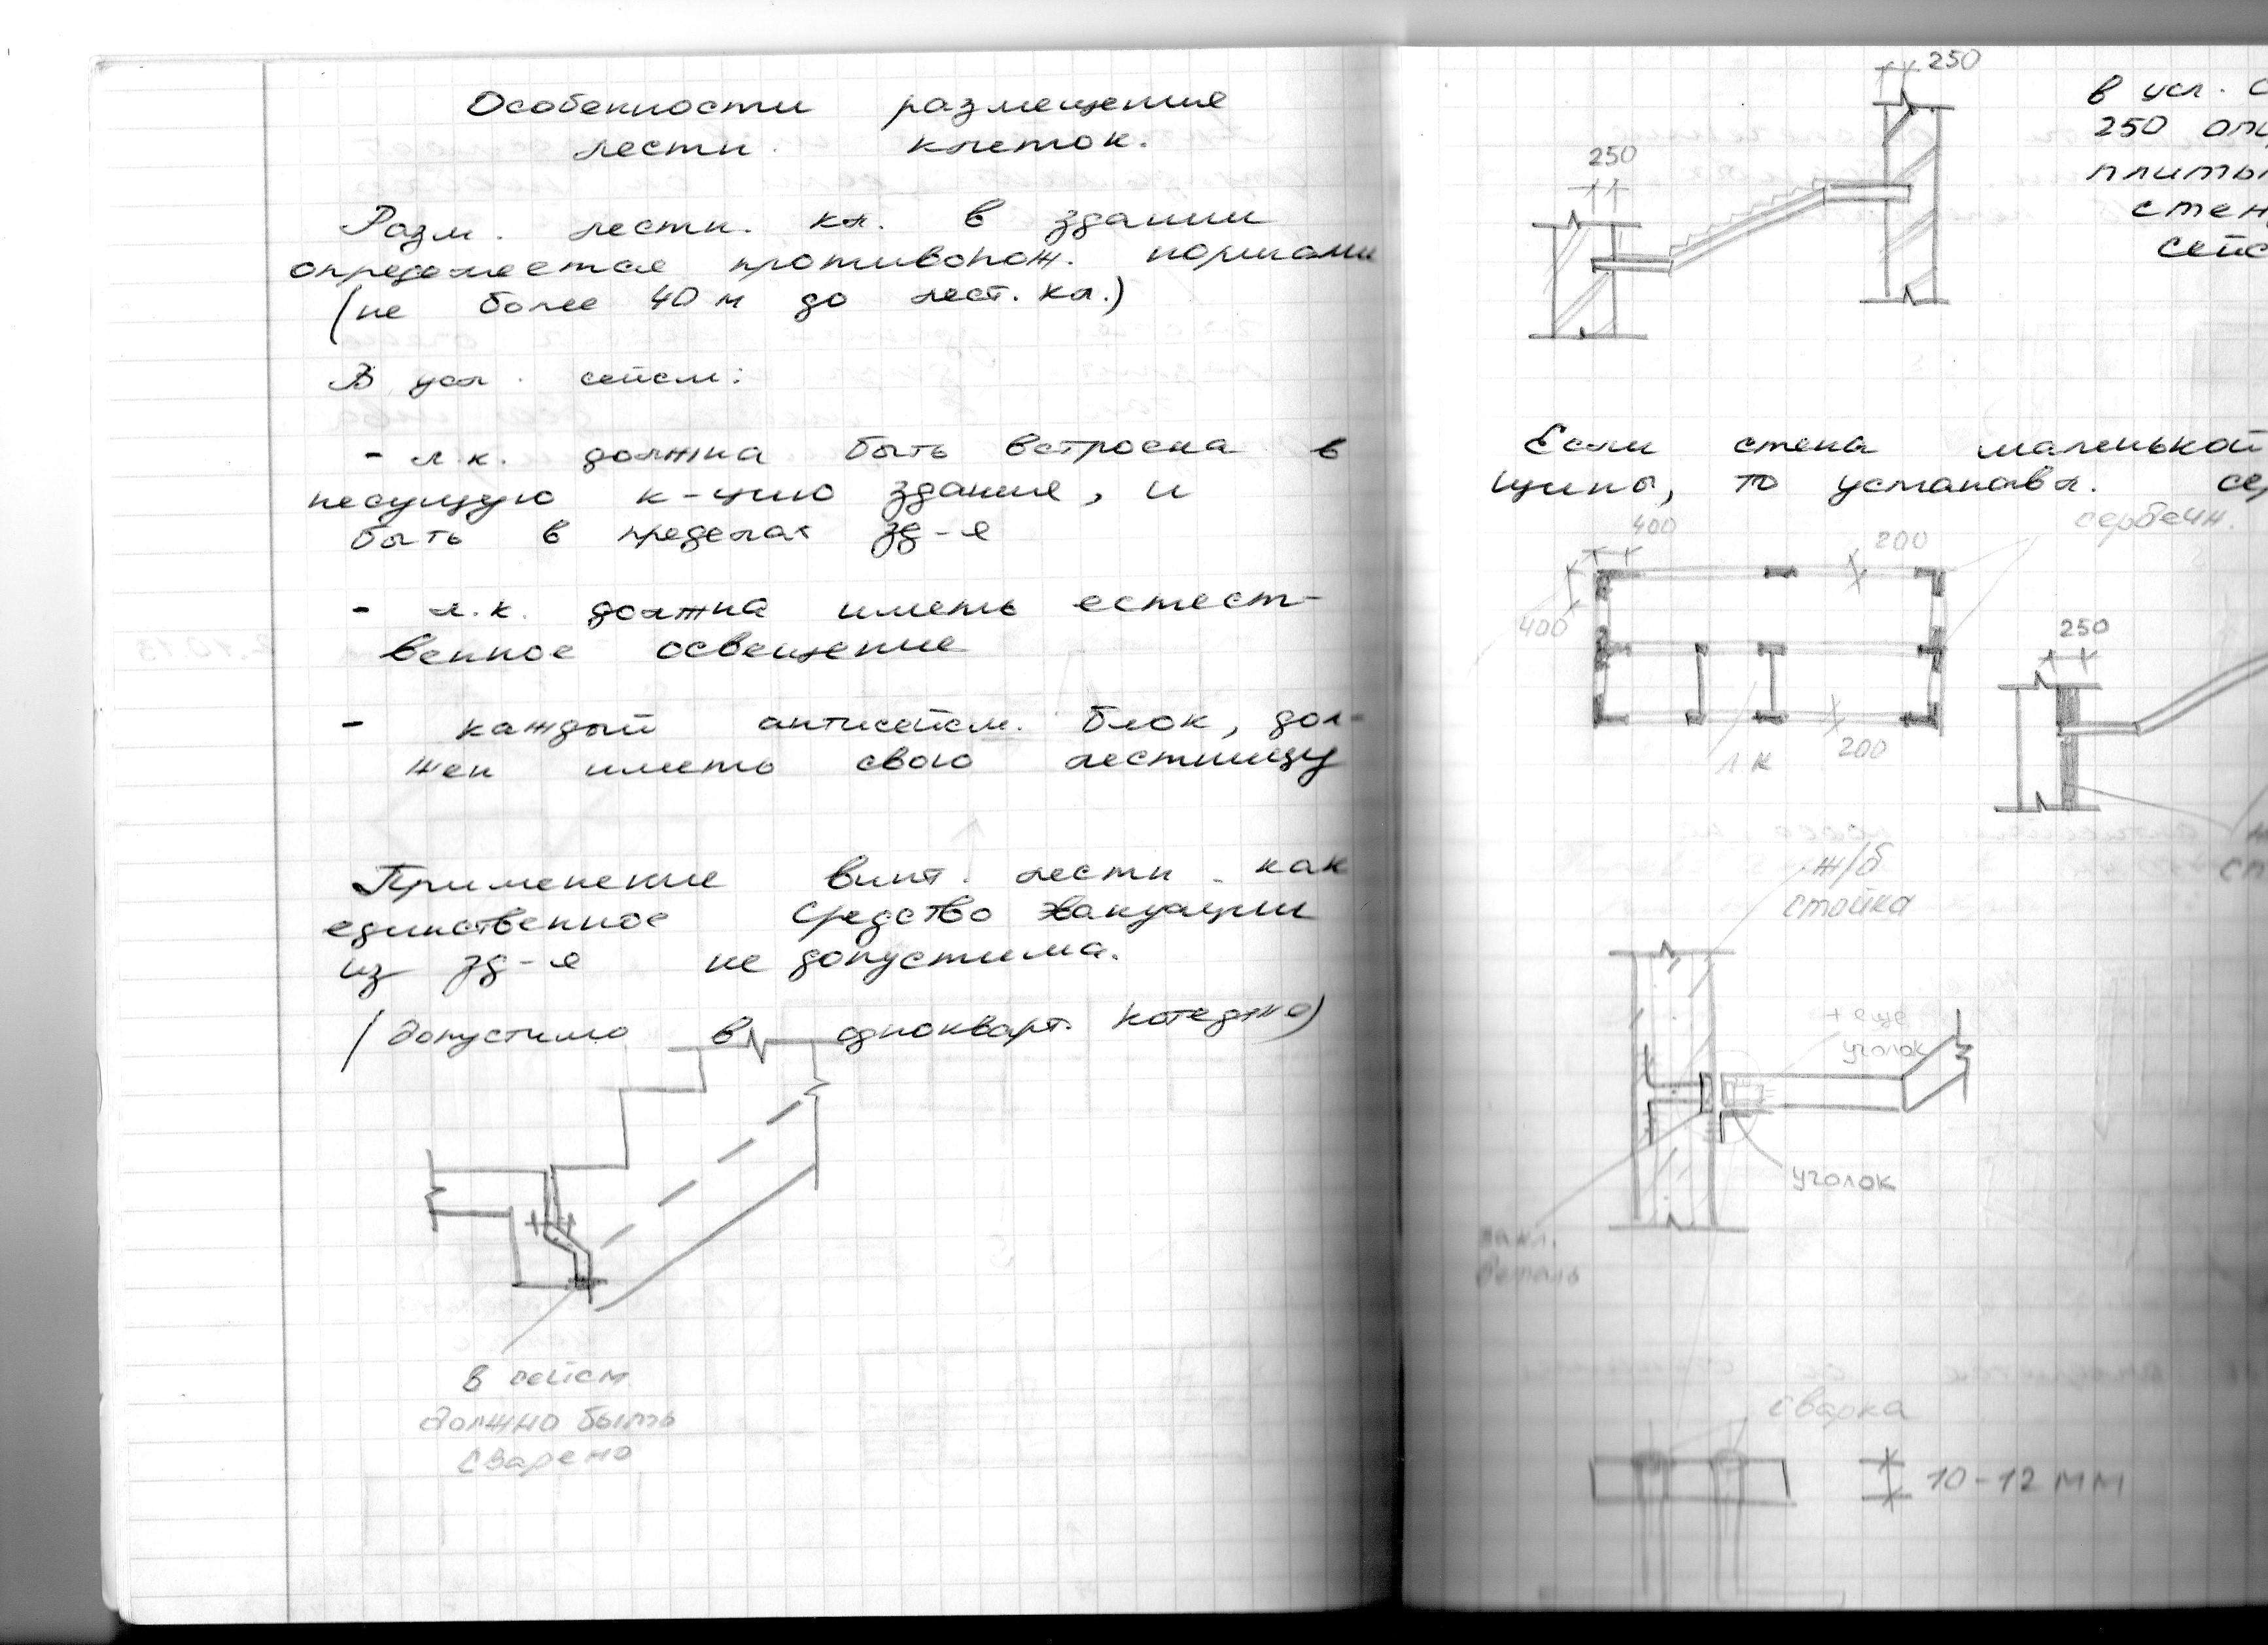 Особенности размещение
лестн. клеток.
Разм. лестн. кл. в здании
определяется противопож. нормами
(не более 40 м до лест. кл.)
В усл. сейсм:
- л.к. должна быть встроена в
несущую к-цию здания, и
быть в пределах зд-я
- л.к. должна иметь естест-
венное освещение
- каждый антисейсм. блок, дол-
жен иметь свою лестницу
Применение винт. лестн. как
единственное средство эвакуации
из зд-я не допустима.
(допустимо в однокварт. котедже)
в сейсм
должно быть
сварено
250
250
в усл. с
250 опи
плиты
стен
сейс
Если стена маленькой
щины, то установл. се
сердечн.
400
200
400
250
200
л к
ж/б
стойка
+ еще
уголок
уголок
закл.
деталь
сварка
10-12 мм